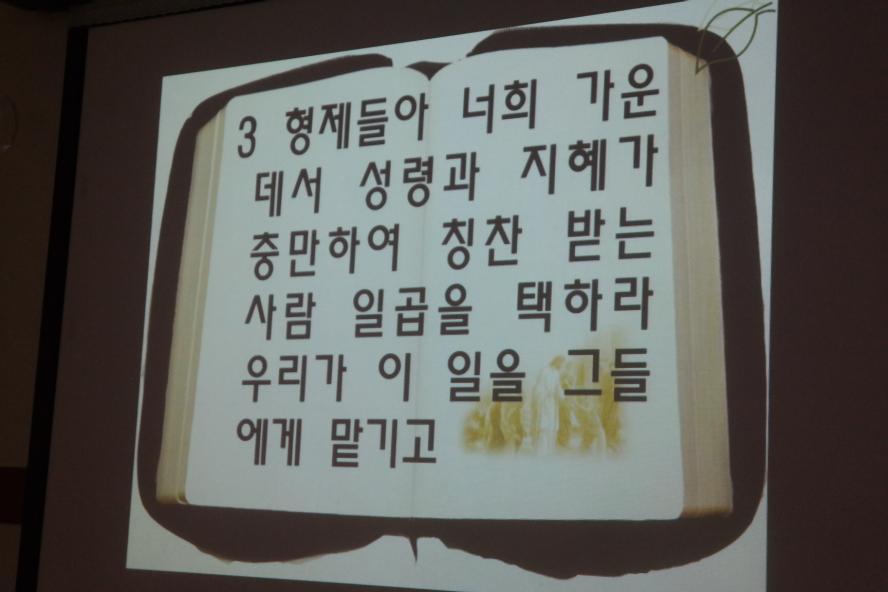 3 형제들아 너희 가운
데서 성령과 지혜가
충만하여 칭찬 받는
사람 일곱을 택하라
우리가 이 일을 그들
에게 맡기고